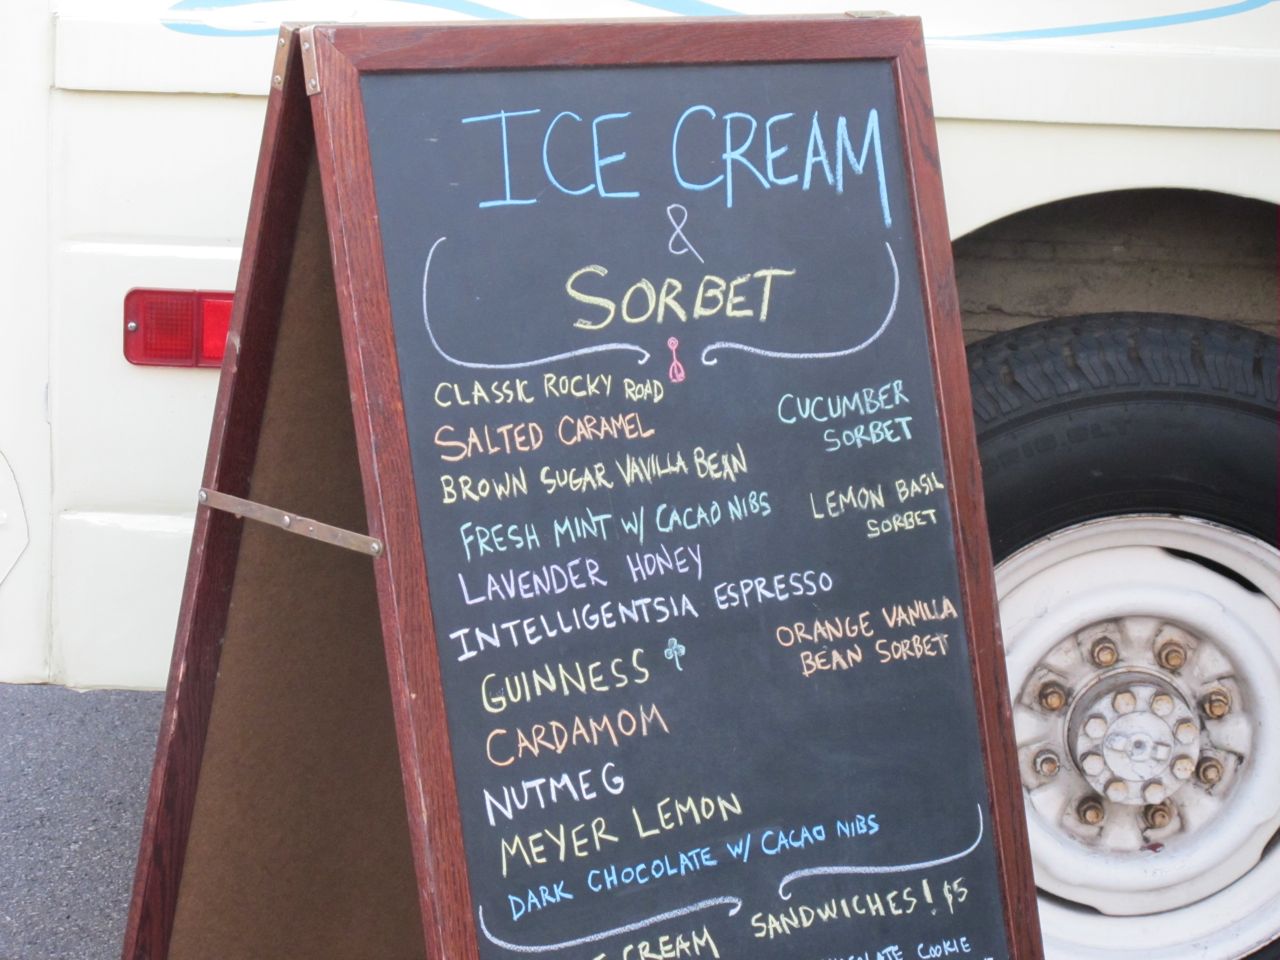 ICE CREAM
&
SORBET
CLASSIC ROCKY ROAD
SALTED CARAMEL
BROWN SUGAR VANILLA BEAN
FRESH MINT W/ CACAO NIBS
LAVENDER HONEY
INTELLIGENTSIA ESPRESSO
GUINNESS
CARDAMOM
NUTMEG
MEYER LEMON
DARK CHOCOLATE W/ CACAO NIBS
CUCUMBER
SORBET
LEMON BASIL
SORBET
ORANGE VANILLA
BEAN SORBET
CREAM SANDWICHES! $5
COOKIE